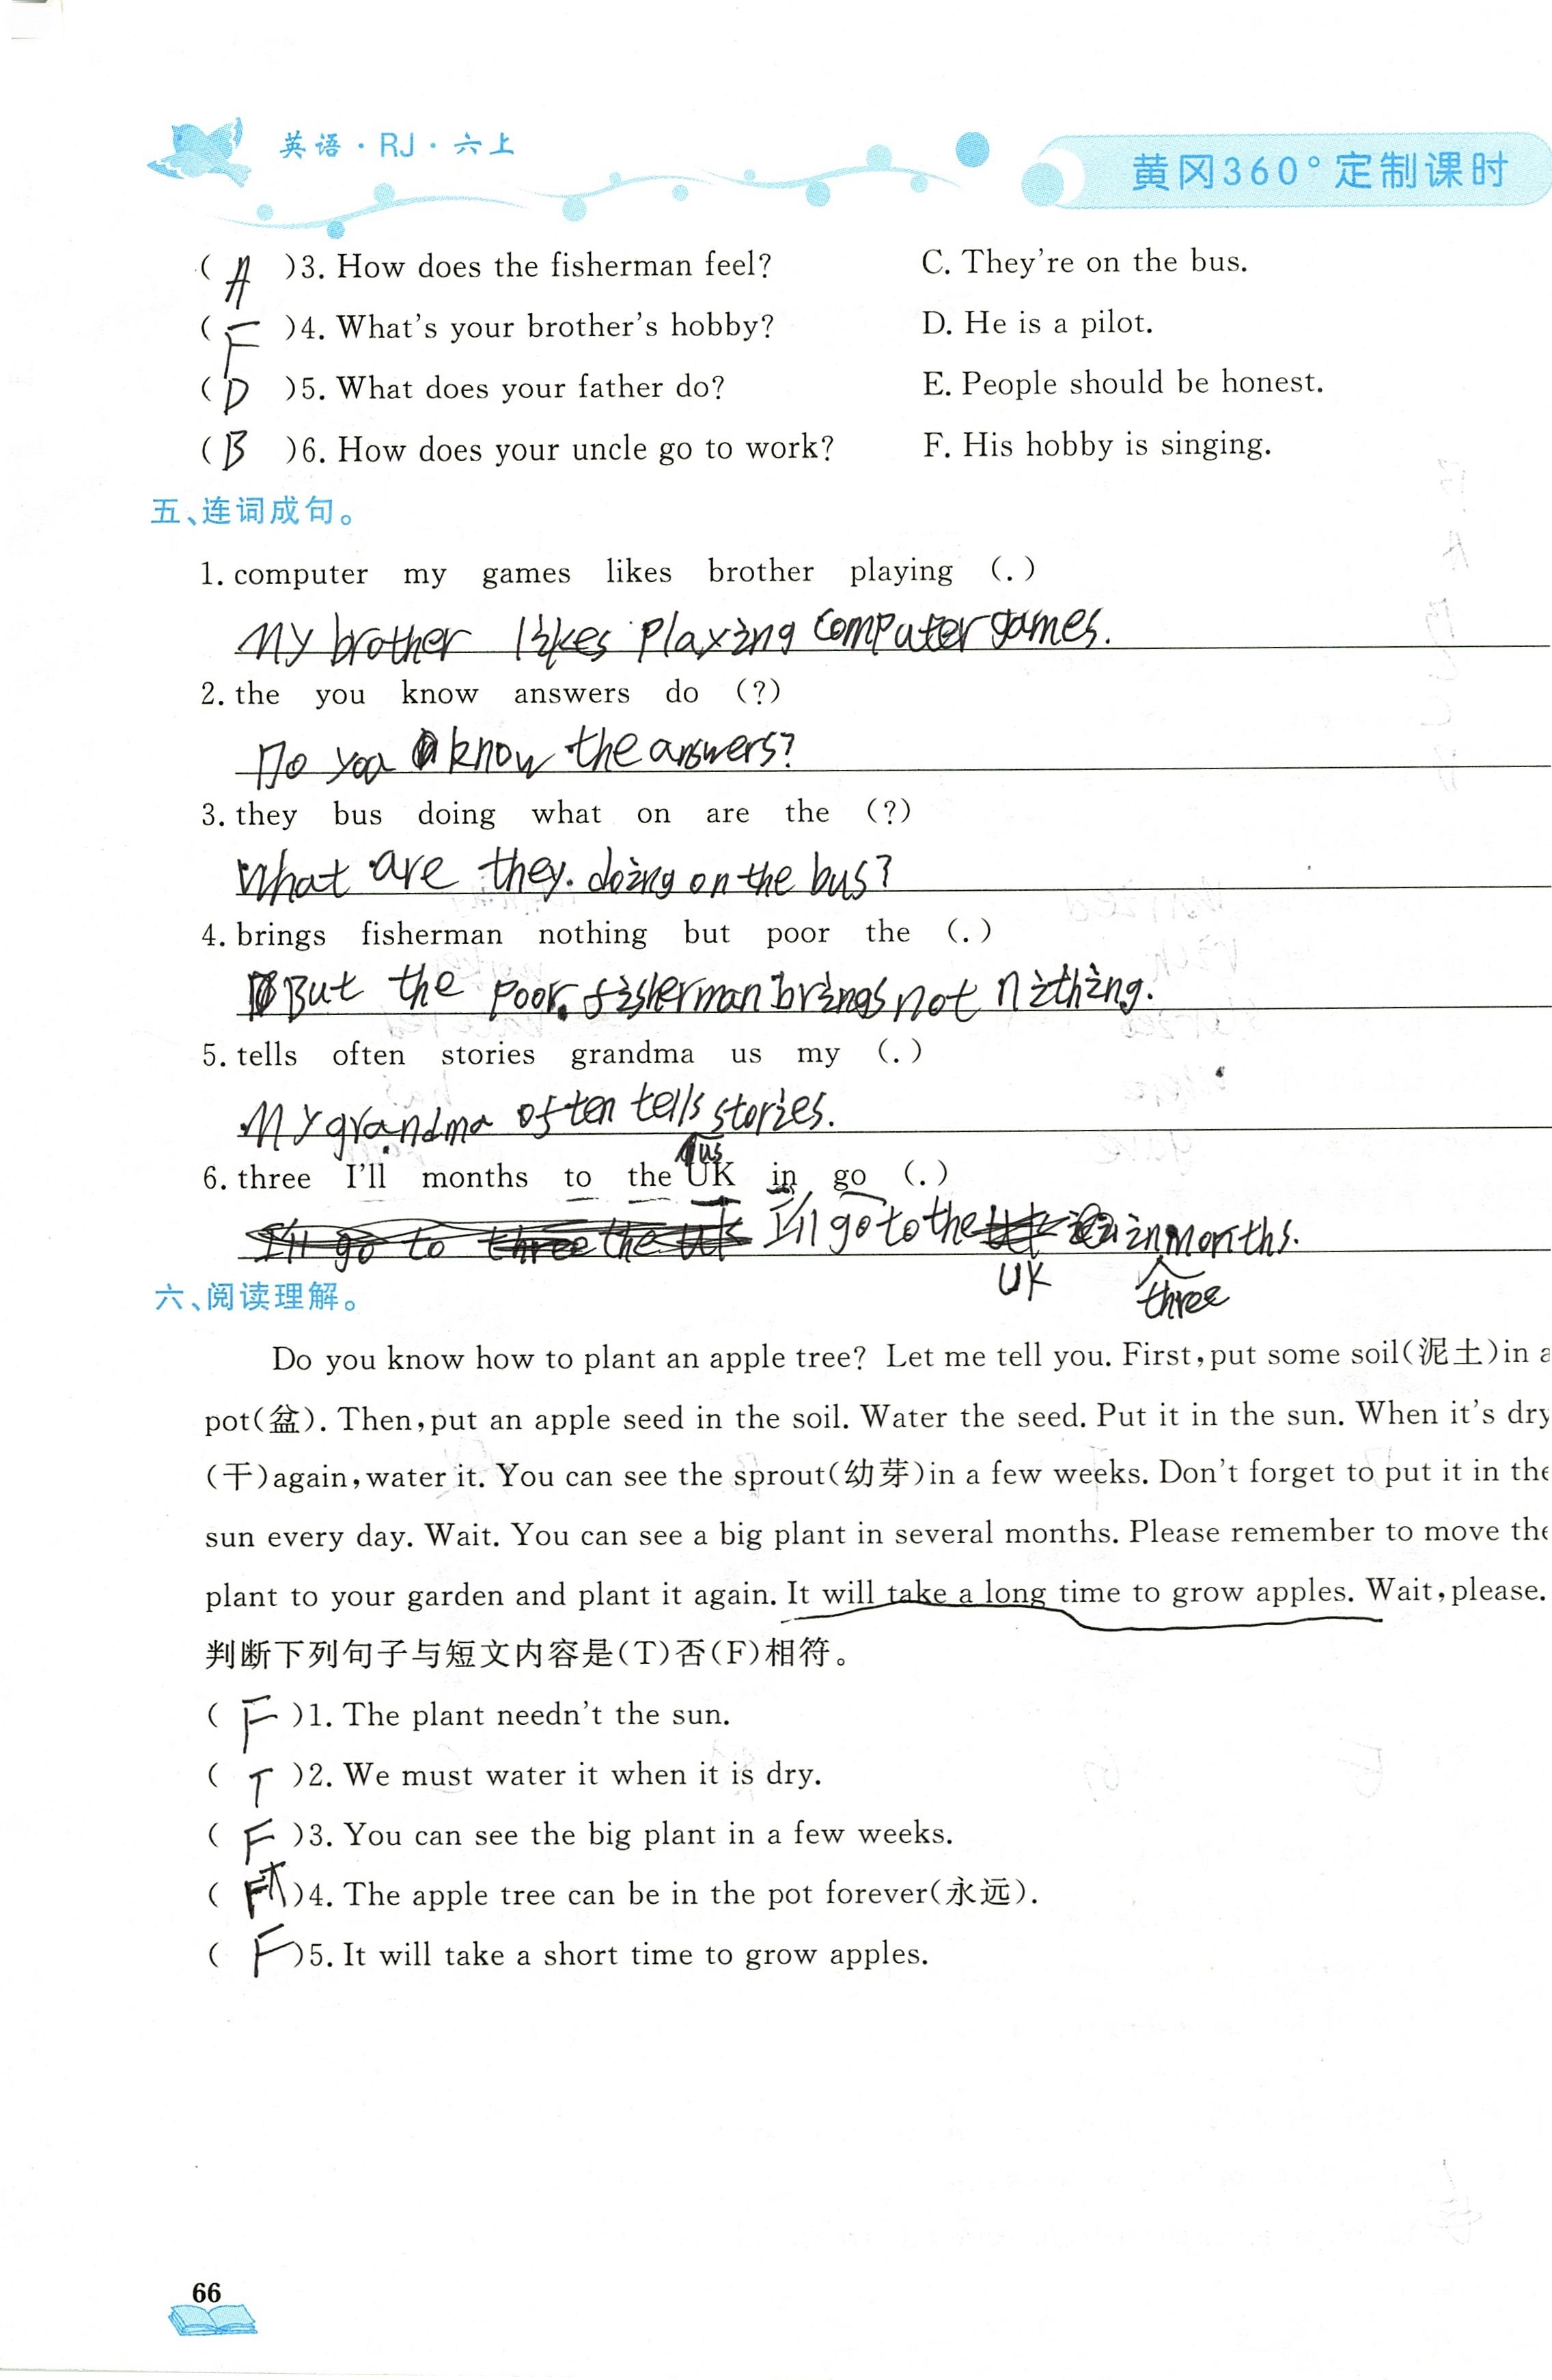 英语·RJ·六上
黄冈360°定制课时
( A )3. How does the fisherman feel? C. They're on the bus.
( F )4. What's your brother's hobby? D. He is a pilot.
( D )5. What does your father do? E. People should be honest.
( B )6. How does your uncle go to work? F. His hobby is singing.
五、连词成句。
1. computer my games likes brother playing (.)
My brother likes playing computer games.
2. the you know answers do (?)
Do you know the answers?
3. they bus doing what on are the (?)
What are they. doing on the bus?
4. brings fisherman nothing but poor the (.)
But the poor. fisherman brings not nithing.
5. tells often stories grandma us my (.)
My grandma often tells stories.
us
6. three I'll months to the UK in go (.)
I'll go to the in months.
UK three
六、阅读理解。
Do you know how to plant an apple tree? Let me tell you. First, put some soil(泥土)in a
pot(盆). Then, put an apple seed in the soil. Water the seed. Put it in the sun. When it's dry
(干)again, water it. You can see the sprout(幼芽)in a few weeks. Don't forget to put it in the
sun every day. Wait. You can see a big plant in several months. Please remember to move the
plant to your garden and plant it again. It will take a long time to grow apples. Wait, please.
判断下列句子与短文内容是(T)否(F)相符。
( F )1. The plant needn't the sun.
( T )2. We must water it when it is dry.
( F )3. You can see the big plant in a few weeks.
( F )4. The apple tree can be in the pot forever(永远).
( F )5. It will take a short time to grow apples.
66